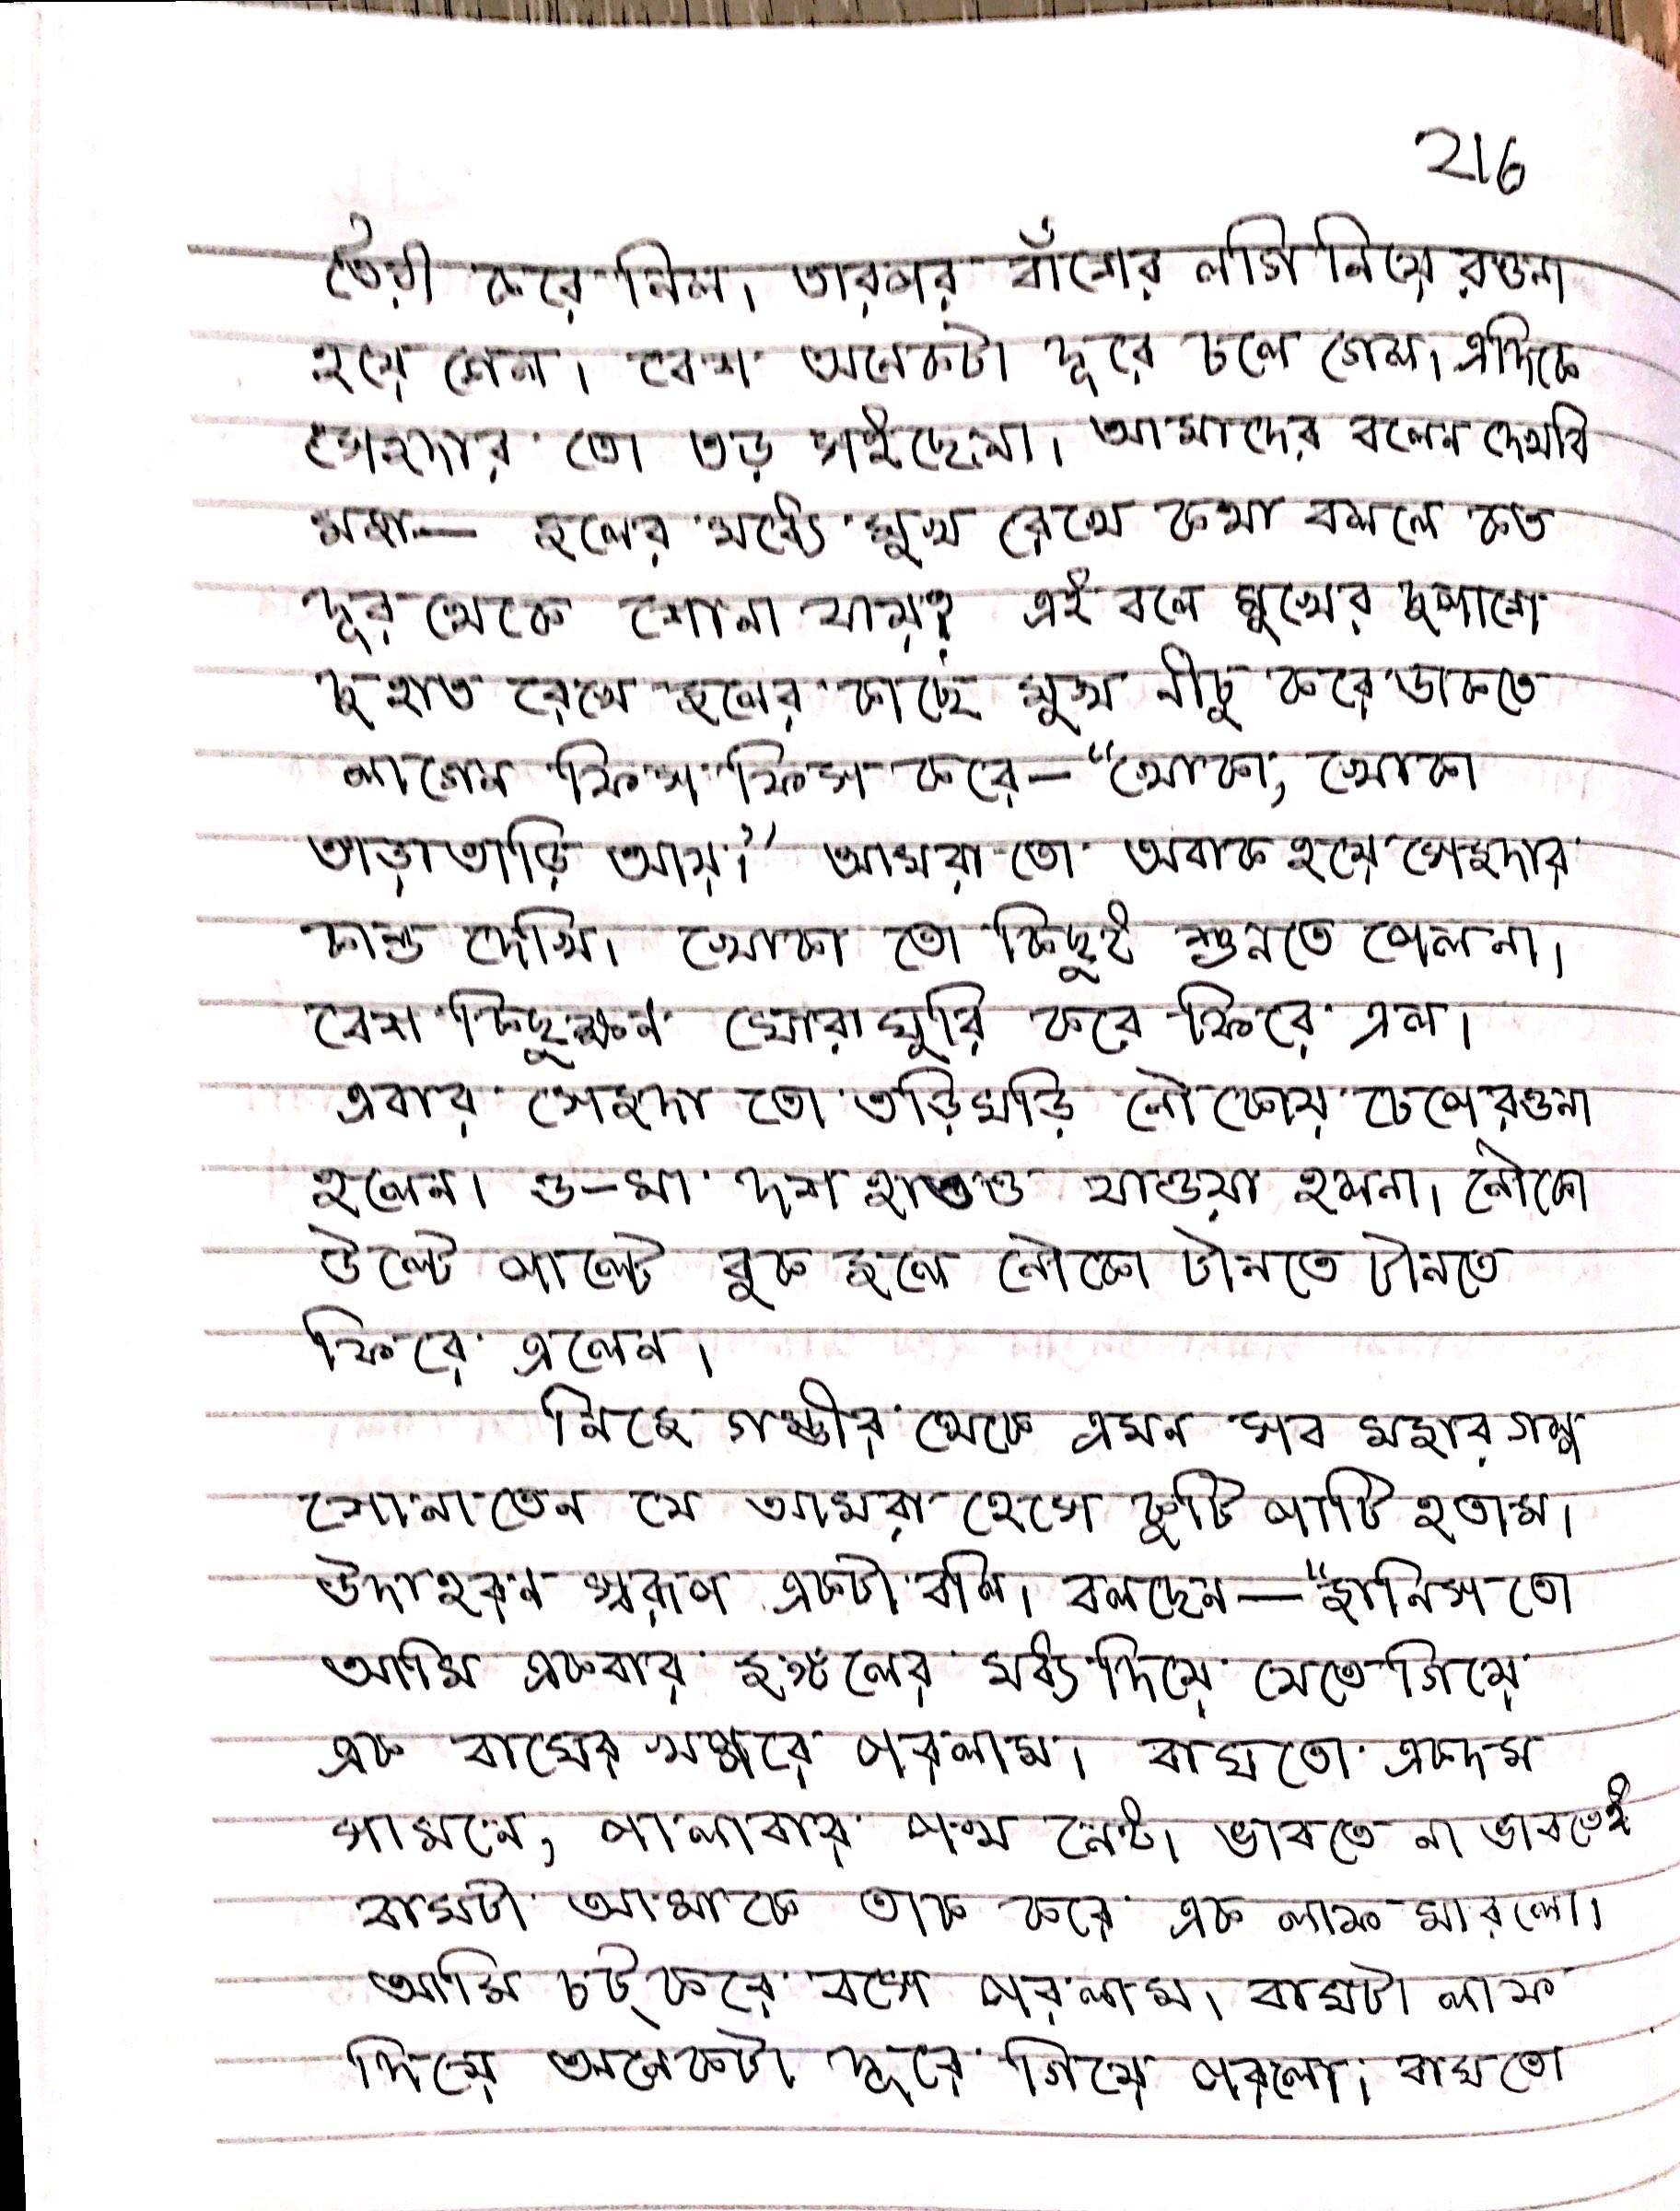 216
তৈরী করে নিল। তারপর বাঁশের লগি নিয়ে রওনা
হয়ে গেল। বেশ অনেকটা দূরে চলে গেল। এদিকে
সেজদার তো তড় সইছেনা। আমাদের বলেন দেখবি
মজা— জলের মধ্যে মুখ রেখে কথা বললে কত
দূর থেকে শোনা যায়? এই বলে মুখের দুপাশে
দু হাত রেখে জলের কাছে মুখ নীচু করে ডাকতে
লাগেন ফিস ফিস করে— “খোকা, খোকা
তাড়াতাড়ি আয়।” আমরা তো অবাক হয়ে সেজদার
কান্ড দেখি। খোকা তো কিছুই শুনতে পেলনা।
বেশ কিছুক্ষন ঘোরাঘুরি করে ফিরে এল।
এবার সেজদা তো তড়িঘড়ি নৌকোয় চেপে রওনা
হলেন। ও-মা দশ হাতও যাওয়া হলনা। নৌকো
উল্টে পাল্টে বুক জলে নৌকো টানতে টানতে
ফিরে এলেন।
নিজে গম্ভীর থেকে এমন সব মজার গল্প
শোনাতেন যে আমরা হেসে কুটি পাটি হতাম।
উদাহরন স্বরূপ একটা বলি। বলছেন— “জানিস তো
আমি একবার জঙ্গলের মধ্য দিয়ে যেতে গিয়ে
এক বাঘের খপ্পরে পরলাম। বাঘ তো একদম
সামনে, পালাবার পথ নেই। ভাবতে না ভাবতেই
বাঘটা আমাকে তাক করে এক লাফ মারলো।
আমি চট্ করে বসে পরলাম। বাঘটা লাফ
দিয়ে অনেকটা দূরে গিয়ে পরলো। বাঘ তো